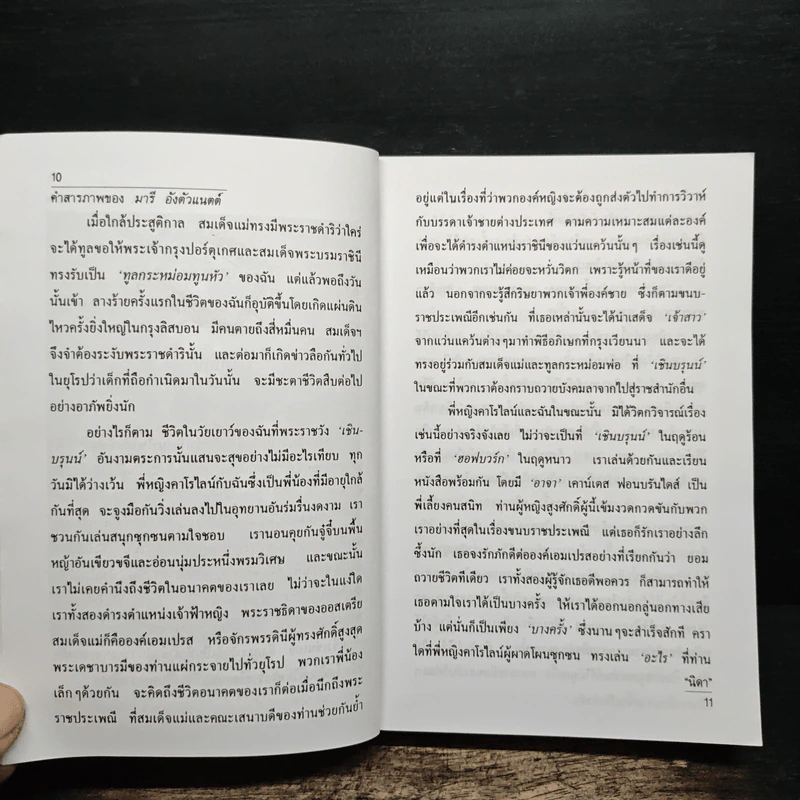 10
คำสารภาพของ มารี อังตัวแนตต์
เมื่อใกล้ประสูติกาล สมเด็จแม่ทรงมีพระราชดำริว่าใคร่
จะได้ทูลขอให้พระเจ้ากรุงปอร์ตุเกศและสมเด็จพระบรมราชินี
ทรงรับเป็น ‘ทูลกระหม่อมทูนหัว’ ของฉัน แต่แล้วพอถึงวัน
นั้นเข้า ลางร้ายครั้งแรกในชีวิตของฉันก็อุบัติขึ้นโดยเกิดแผ่นดิน
ไหวครั้งยิ่งใหญ่ในกรุงลิสบอน มีคนตายถึงสี่หมื่นคน สมเด็จฯ
จึงจำต้องระงับพระราชดำรินั้น และต่อมาก็เกิดข่าวลือกันทั่วไป
ในยุโรปว่าเด็กที่ถือกำเนิดมาในวันนั้น จะมีชะตาชีวิตสืบต่อไป
อย่างอาภัพยิ่งนัก
อย่างไรก็ตาม ชีวิตในวัยเยาว์ของฉันที่พระราชวัง ‘เชิน-
บรุนน์’ อันงามตระการนั้นแสนจะสุขอย่างไม่มีอะไรเทียบ ทุก
วันมิได้ว่างเว้น พี่หญิงคาโรไลน์กับฉันซึ่งเป็นพี่น้องที่มีอายุใกล้
กันที่สุด จะจูงมือกันวิ่งเล่นลงไปในอุทยานอันร่มรื่นงดงาม เรา
ชวนกันเล่นสนุกซุกซนตามใจชอบ เรานอนคุยกันจู๋จี๋บนพื้น
หญ้าอันเขียวขจีและอ่อนนุ่มประหนึ่งพรมวิเศษ และขณะนั้น
เราไม่เคยคำนึงถึงชีวิตในอนาคตของเราเลย ไม่ว่าจะในแง่ใด
เราทั้งสองดำรงตำแหน่งเจ้าฟ้าหญิง พระราชธิดาของออสเตรีย
สมเด็จแม่ก็คือองค์เอมเปรส หรือจักรพรรดินีผู้ทรงศักดิ์สูงสุด
พระเดชาบารมีของท่านแผ่กระจายไปทั่วยุโรป พวกเราพี่น้อง
เล็กๆด้วยกัน จะคิดถึงชีวิตอนาคตของเราก็ต่อเมื่อนึกถึงพระ
ราชประเพณี ที่สมเด็จแม่และคณะเสนาบดีของท่านช่วยกันย้ำ
อยู่แต่ในเรื่องที่ว่าพวกองค์หญิงจะต้องถูกส่งตัวไปทำการวิวาห์
กับบรรดาเจ้าชายต่างประเทศ ตามความเหมาะสมแต่ละองค์
เพื่อจะได้ดำรงตำแหน่งราชินีของแว่นแคว้นนั้นๆ เรื่องเช่นนี้ดู
เหมือนว่าพวกเราไม่ค่อยจะหวั่นวิตก เพราะรู้หน้าที่ของเราดีอยู่
แล้ว นอกจากจะรู้สึกริษยาพวกเจ้าพี่องค์ชาย ซึ่งก็ตามขนบ-
ราชประเพณีอีกเช่นกัน ที่เธอเหล่านั้นจะได้นำเสด็จ ‘เจ้าสาว’
จากแว่นแคว้นต่างๆมาทำพิธีอภิเษกที่กรุงเวียนนา และจะได้
ทรงอยู่ร่วมกับสมเด็จแม่และทูลกระหม่อมพ่อ ที่ ‘เชินบรุนน์’
ในขณะที่พวกเราต้องกราบถวายบังคมลาจากไปสู่ราชสำนักอื่น
พี่หญิงคาโรไลน์และฉันในขณะนั้น มิได้วิตกวิจารณ์เรื่อง
เช่นนี้อย่างจริงจังเลย ไม่ว่าจะเป็นที่ ‘เชินบรุนน์’ ในฤดูร้อน
หรือที่ ‘ฮอฟบวร์ก’ ในฤดูหนาว เราเล่นด้วยกันและเรียน
หนังสือพร้อมกัน โดยมี ‘อาจา’ เคาน์เตส ฟอนบรันไดส์ เป็น
พี่เลี้ยงคนสนิท ท่านผู้หญิงสูงศักดิ์ผู้นี้เข้มงวดกวดขันกับพวก
เราอย่างที่สุดในเรื่องขนบราชประเพณี แต่เธอก็รักเราอย่างลึก
ซึ้งนัก เธอจงรักภักดีต่อองค์เอมเปรสอย่างที่เรียกกันว่า ยอม
ถวายชีวิตทีเดียว เราทั้งสองผู้รู้จักเธอดีพอควร ก็สามารถทำให้
เธอตามใจเราได้เป็นบางครั้ง ให้เราได้ออกนอกลู่นอกทางเสีย
บ้าง แต่นั่นก็เป็นเพียง ‘บางครั้ง’ ซึ่งนานๆจะสำเร็จสักที ครา
ใดที่พี่หญิงคาโรไลน์ผู้ผาดโผนซุกซน ทรงเล่น ‘อะไร’ ที่ท่าน
“นิดา”
11